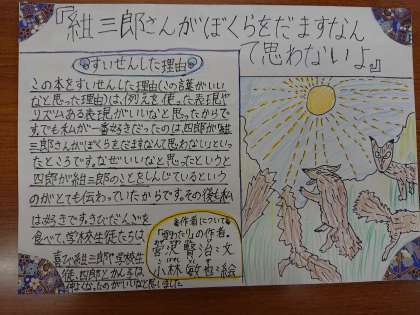 『紺三郎さんがぼくらをだますなん
て思わないよ。』
すいせんした理由
この本をすいせんした理由(この言葉がいい
なと思った理由)は、例えを使った表現や
リズムある表現がいいなと思ったからで
す。でも私が一番好きだったのは、四郎が「紺
三郎さんがぼくらをだますなんて思わない」といっ
たところです。なぜいいなと思ったというと
四郎が紺三郎のことをしんじているという
のがとても伝わっていたからです。その後も私
は好きです。きびだんごを
食べて、学校生徒たちは、
喜び紺三郎や学校生
徒、四郎とかん子は、
仲よくなったのがいいなと思いました。
作者について
「雪わたり」の作者。
宮沢賢治・文
小林敏也・絵